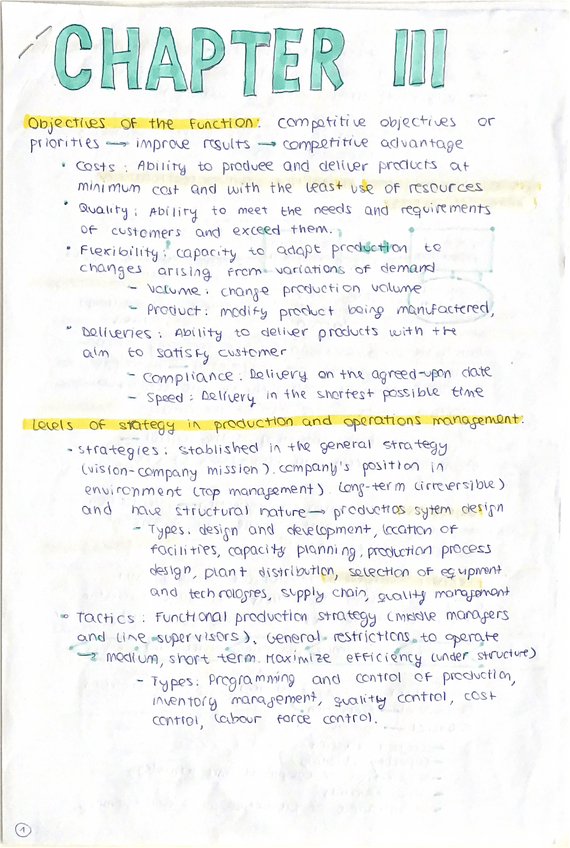 CHAPTER III
Objectives of the function: competitive objectives or
priorities → improve results → competitive advantage
• Costs: Ability to produce and deliver products at
minimum cost and with the least use of resources
• Quality: Ability to meet the needs and requirements
of customers and exceed them.
• Flexibility: capacity to adapt production to
changes arising from variations of demand
- Volume: change production volume
- Product: modify product being manufactered,
• Deliveries: Ability to deliver products with the
aim to satisfy customer
- Compliance: Delivery on the agreed-upon date
- Speed: Delivery in the shortest possible time
Levels of stategy in production and operations management:
• Strategies: stablished in the general strategy
(vision-company mission). company's position in
environment (Top management). Long-term (irreversible)
and have structural nature → production sytem design
- Types. design and development, location of
facilities, capacity planning, production process
design, plant distribution, selection of equipment
and technologies, supply chain, quality management
• Tactics: Functional production strategy (middle managers
and line supervisors). General restrictions to operate
→ medium, short term. Maximize efficiency (under structure)
- Types: Programming and control of production,
inventory management, quality control, cost
control, labour force control.
1